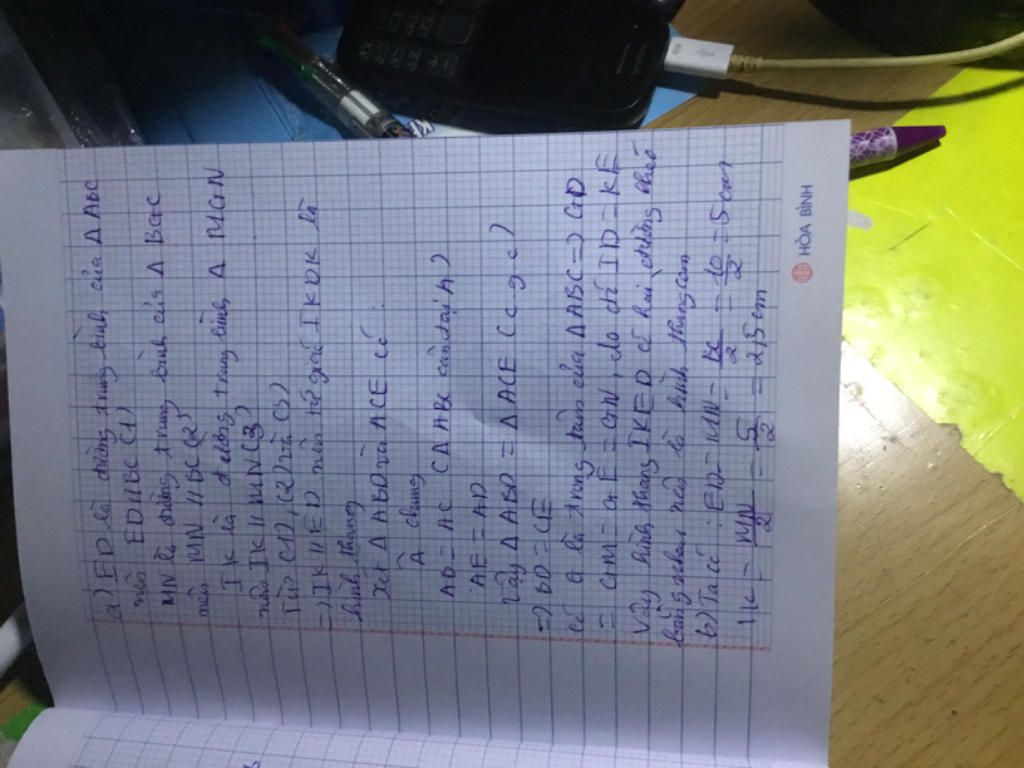 a) ED là đường trung bình của Δ ABC
nên ED//BC (1)
MN là đường trung bình của Δ BGC
nên MN // BC (2)
IK là đường trung bình Δ MGN
nên IK // MN (3)
Từ (1), (2) và (3)
=) IK // ED nên tứ giác IKDK là
hình thang
Xét Δ ABD và ACE có
A chung
AB = AC (Δ ABC cân tại A)
AE = AD
Vậy Δ ABD = Δ ACE (c g c)
=) BD = CE
Có G là trọng tâm của Δ ABC =) GD
= GM = GE = GN, do đó ID = KE
Vậy hình thang IKED có hai đường chéo
bằng nhau nên là hình thang cân
b) Ta có : ED = MN = BC/2 = 10/2 = 5 cm
IK = MN/2 = 5/2 = 2,5 cm
HÒA BÌNH